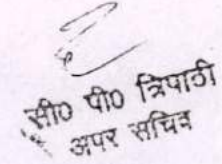 सी0 पी0 त्रिपाठी
अपर सचिव